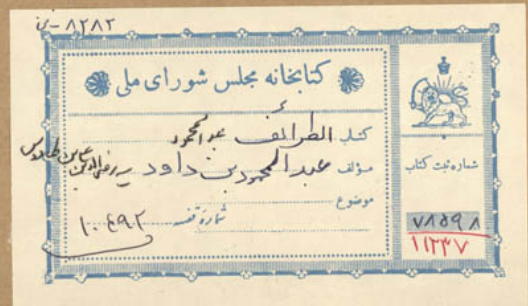 ۸۲۸۲ - ن
کتابخانه مجلس شورای ملی
کتاب الطرائف عبدالمحمود
مؤلف عبدالمحمود بن داود
موضوع
شماره قفسه ۱۰۴۹۰۲
شماره ثبت کتاب
۷۸۵۹۸
۱۱۲۳۷